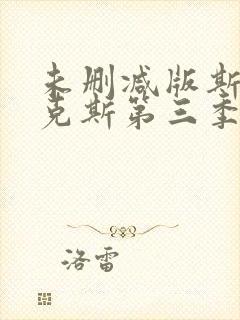 未删减版斯
克斯第三季
洛雷